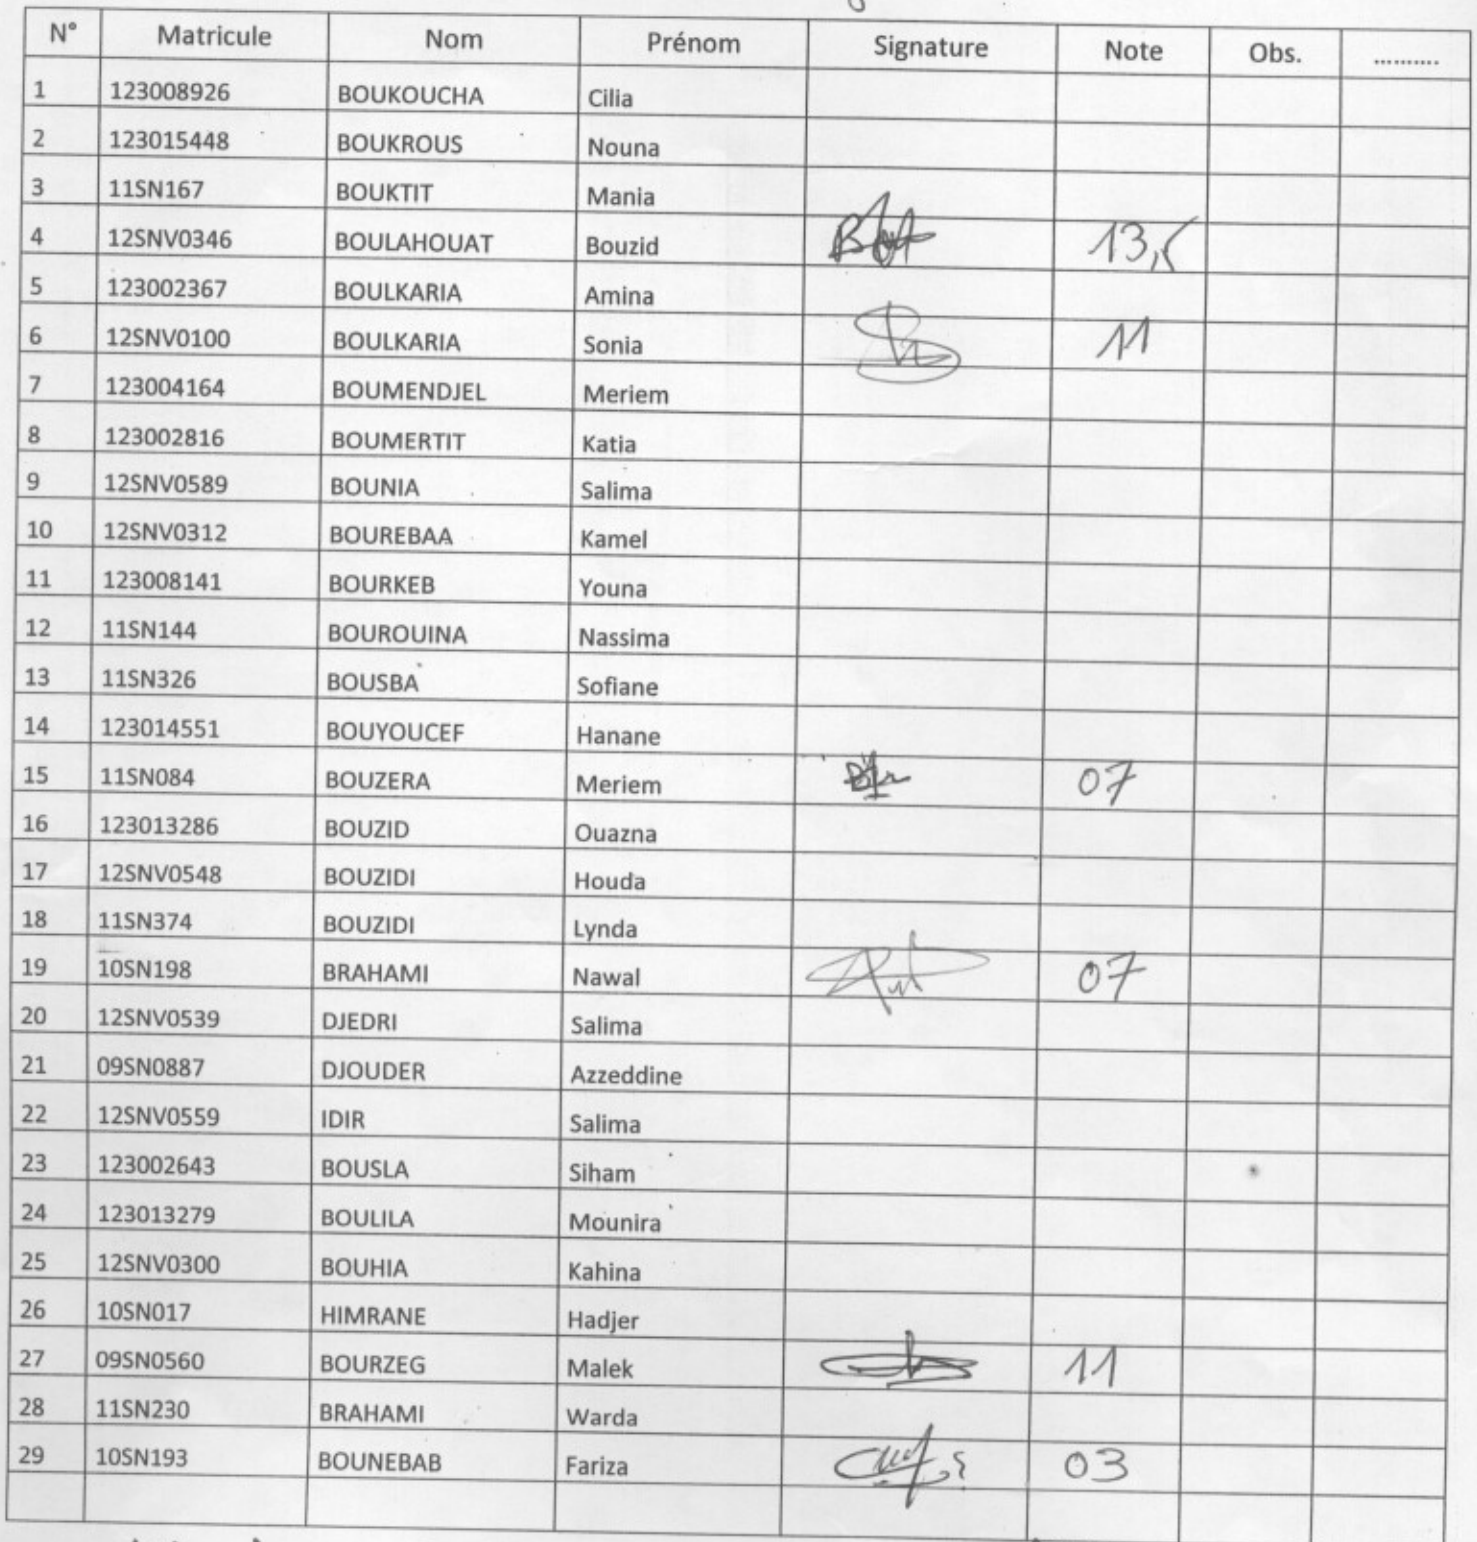 N° Matricule Nom Prénom Signature Note Obs. ..........
1 123008926 BOUKOUCHA Cilia
2 123015448 BOUKROUS Nouna
3 11SN167 BOUKTIT Mania
4 12SNV0346 BOULAHOUAT Bouzid 13,5
5 123002367 BOULKARIA Amina
6 12SNV0100 BOULKARIA Sonia 11
7 123004164 BOUMENDJEL Meriem
8 123002816 BOUMERTIT Katia
9 12SNV0589 BOUNIA Salima
10 12SNV0312 BOUREBAA Kamel
11 123008141 BOURKEB Youna
12 11SN144 BOUROUINA Nassima
13 11SN326 BOUSBA Sofiane
14 123014551 BOUYOUCEF Hanane
15 11SN084 BOUZERA Meriem 07
16 123013286 BOUZID Ouazna
17 12SNV0548 BOUZIDI Houda
18 11SN374 BOUZIDI Lynda
19 10SN198 BRAHAMI Nawal 07
20 12SNV0539 DJEDRI Salima
21 09SN0887 DJOUDER Azzeddine
22 12SNV0559 IDIR Salima
23 123002643 BOUSLA Siham
24 123013279 BOULILA Mounira
25 12SNV0300 BOUHIA Kahina
26 10SN017 HIMRANE Hadjer
27 09SN0560 BOURZEG Malek 11
28 11SN230 BRAHAMI Warda
29 10SN193 BOUNEBAB Fariza 03